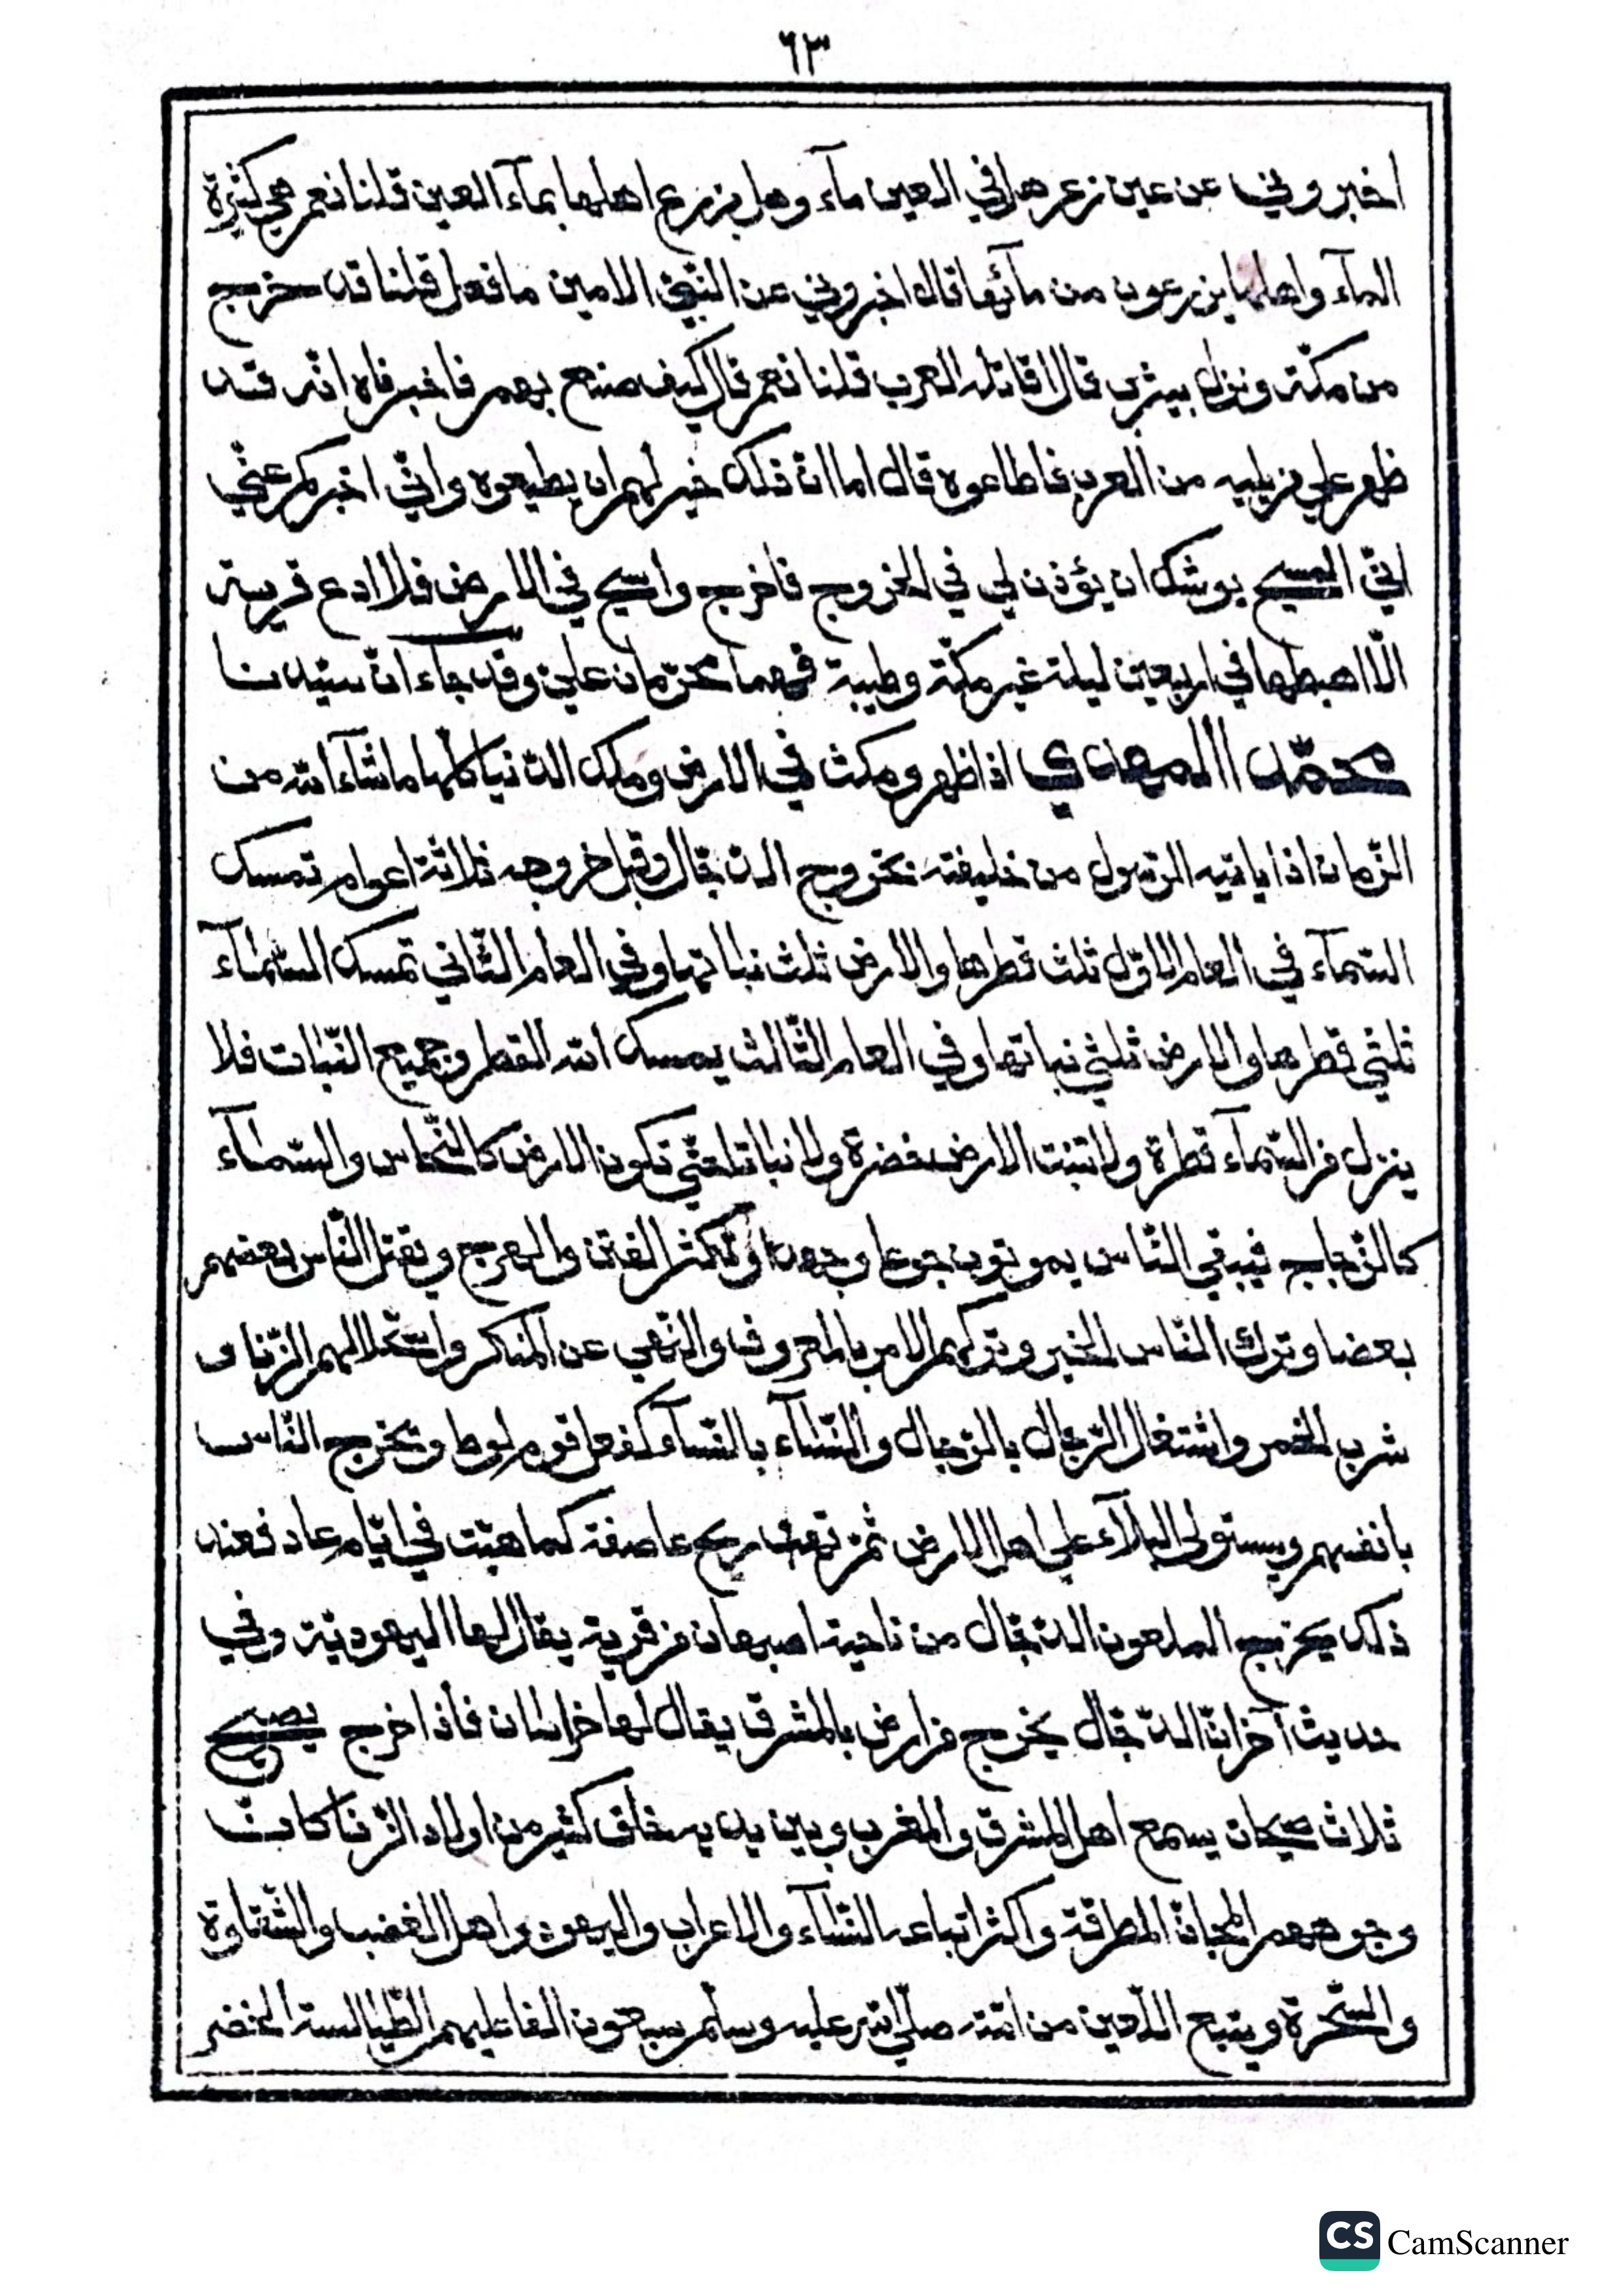 ٦٣
اخبروني عن عين زعر هل في العين مآء وهل يزرع اهلها بمآء العين قلنا نعم هي كثيرة
المآء واهلها يزرعون من مآئها قال اخبروني عن النبيّ الامين ما فعل قلنا قد خرج
من مكّة ونزل بيثرب قال اقاتله العرب قلنا نعم قال كيف صنع بهم فاخبرناه انّه قد
ظهر علي من يليه من العرب فاطاعوه قال اما انّ ذلك خير لهم ان يطيعوه وانّي اخبركم عنّي
انّي المسيح يوشك ان يؤذن لي في الخروج فاخرج واسيح في الارض فلا ادع قرية
الّا اهبطها في اربعين ليلة غير مكّة وطيبة فهما محرّمان عليّ وقد جآء انّ سيّدنا
محمّد المهدي اذا ظهر ومكث في الارض وملك الدّنيا كلّها ما شآء الله من
الزّمان اذا ياتيه الرّسول من خليفته بخروج الدّجّال وقبل خروجه ثلاثة اعوام تمسك
السّمآء في العام الاوّل ثلث قطرها والارض ثلث نباتها وفي العام الثّاني تمسك السّمآء
ثلثي قطرها والارض ثلثي نباتها وفي العام الثّالث يمسك الله القطر وجميع النّبات فلا
ينزل من السّمآء قطرة ولا تنبت الارض خضرة ولا نباتا حتّي تكون الارض كالنّحاس والسّمآء
كالزّجاج فيبقي النّاس يموتون جوعا وجهدا وتكثر الفتن والهرج ويقتل النّاس بعضهم
بعضا وترك النّاس الخير وتركهم الامر بالمعروف والنّهي عن المنكر واستحلالهم الزّنا و
شرب الخمر واشتغال الرّجال بالرّجال والنّسآء بالنّسآء كفعل قوم لوط وتخرج النّاس
بانفسهم ويستولي البلآء علي اهل الارض ثمّ تهب ريح عاصفة كما هبّت في ايّام عاد فعند
ذلك يخرج الملعون الدّجّال من ناحية اصبهان من قرية يقال لها اليهوديّة وفي
حديث آخر انّ الدّجّال يخرج من ارض بالمشرق يقال لها خراسان فأذا خرج يصيح
ثلاث صيحات يسمع اهل المشرق والمغرب وبين يديه خلق كثير من اولاد الزّنا كانّ
وجوههم المجانّ المطرقة واكثر اتباعه النّسآء والاعراب واليهود واهل الغضب والشّقاوة
والسّحرة ويتبع اللّعين من امّته صلّي الله عليه وسلّم سبعون الفا عليهم الطّيالسة الخضر
CS CamScanner